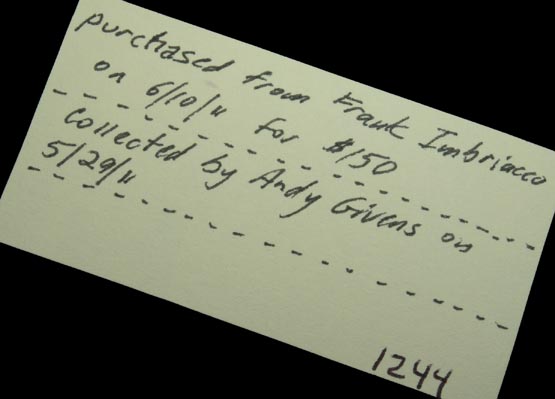 purchased from Frank Imbriacco
on 6/10/11 for $150
collected by Andy Givens on
5/29/11
1244